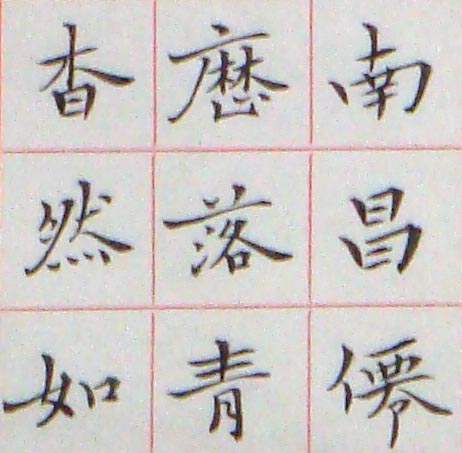 南昌僊
歴落青
杳然如